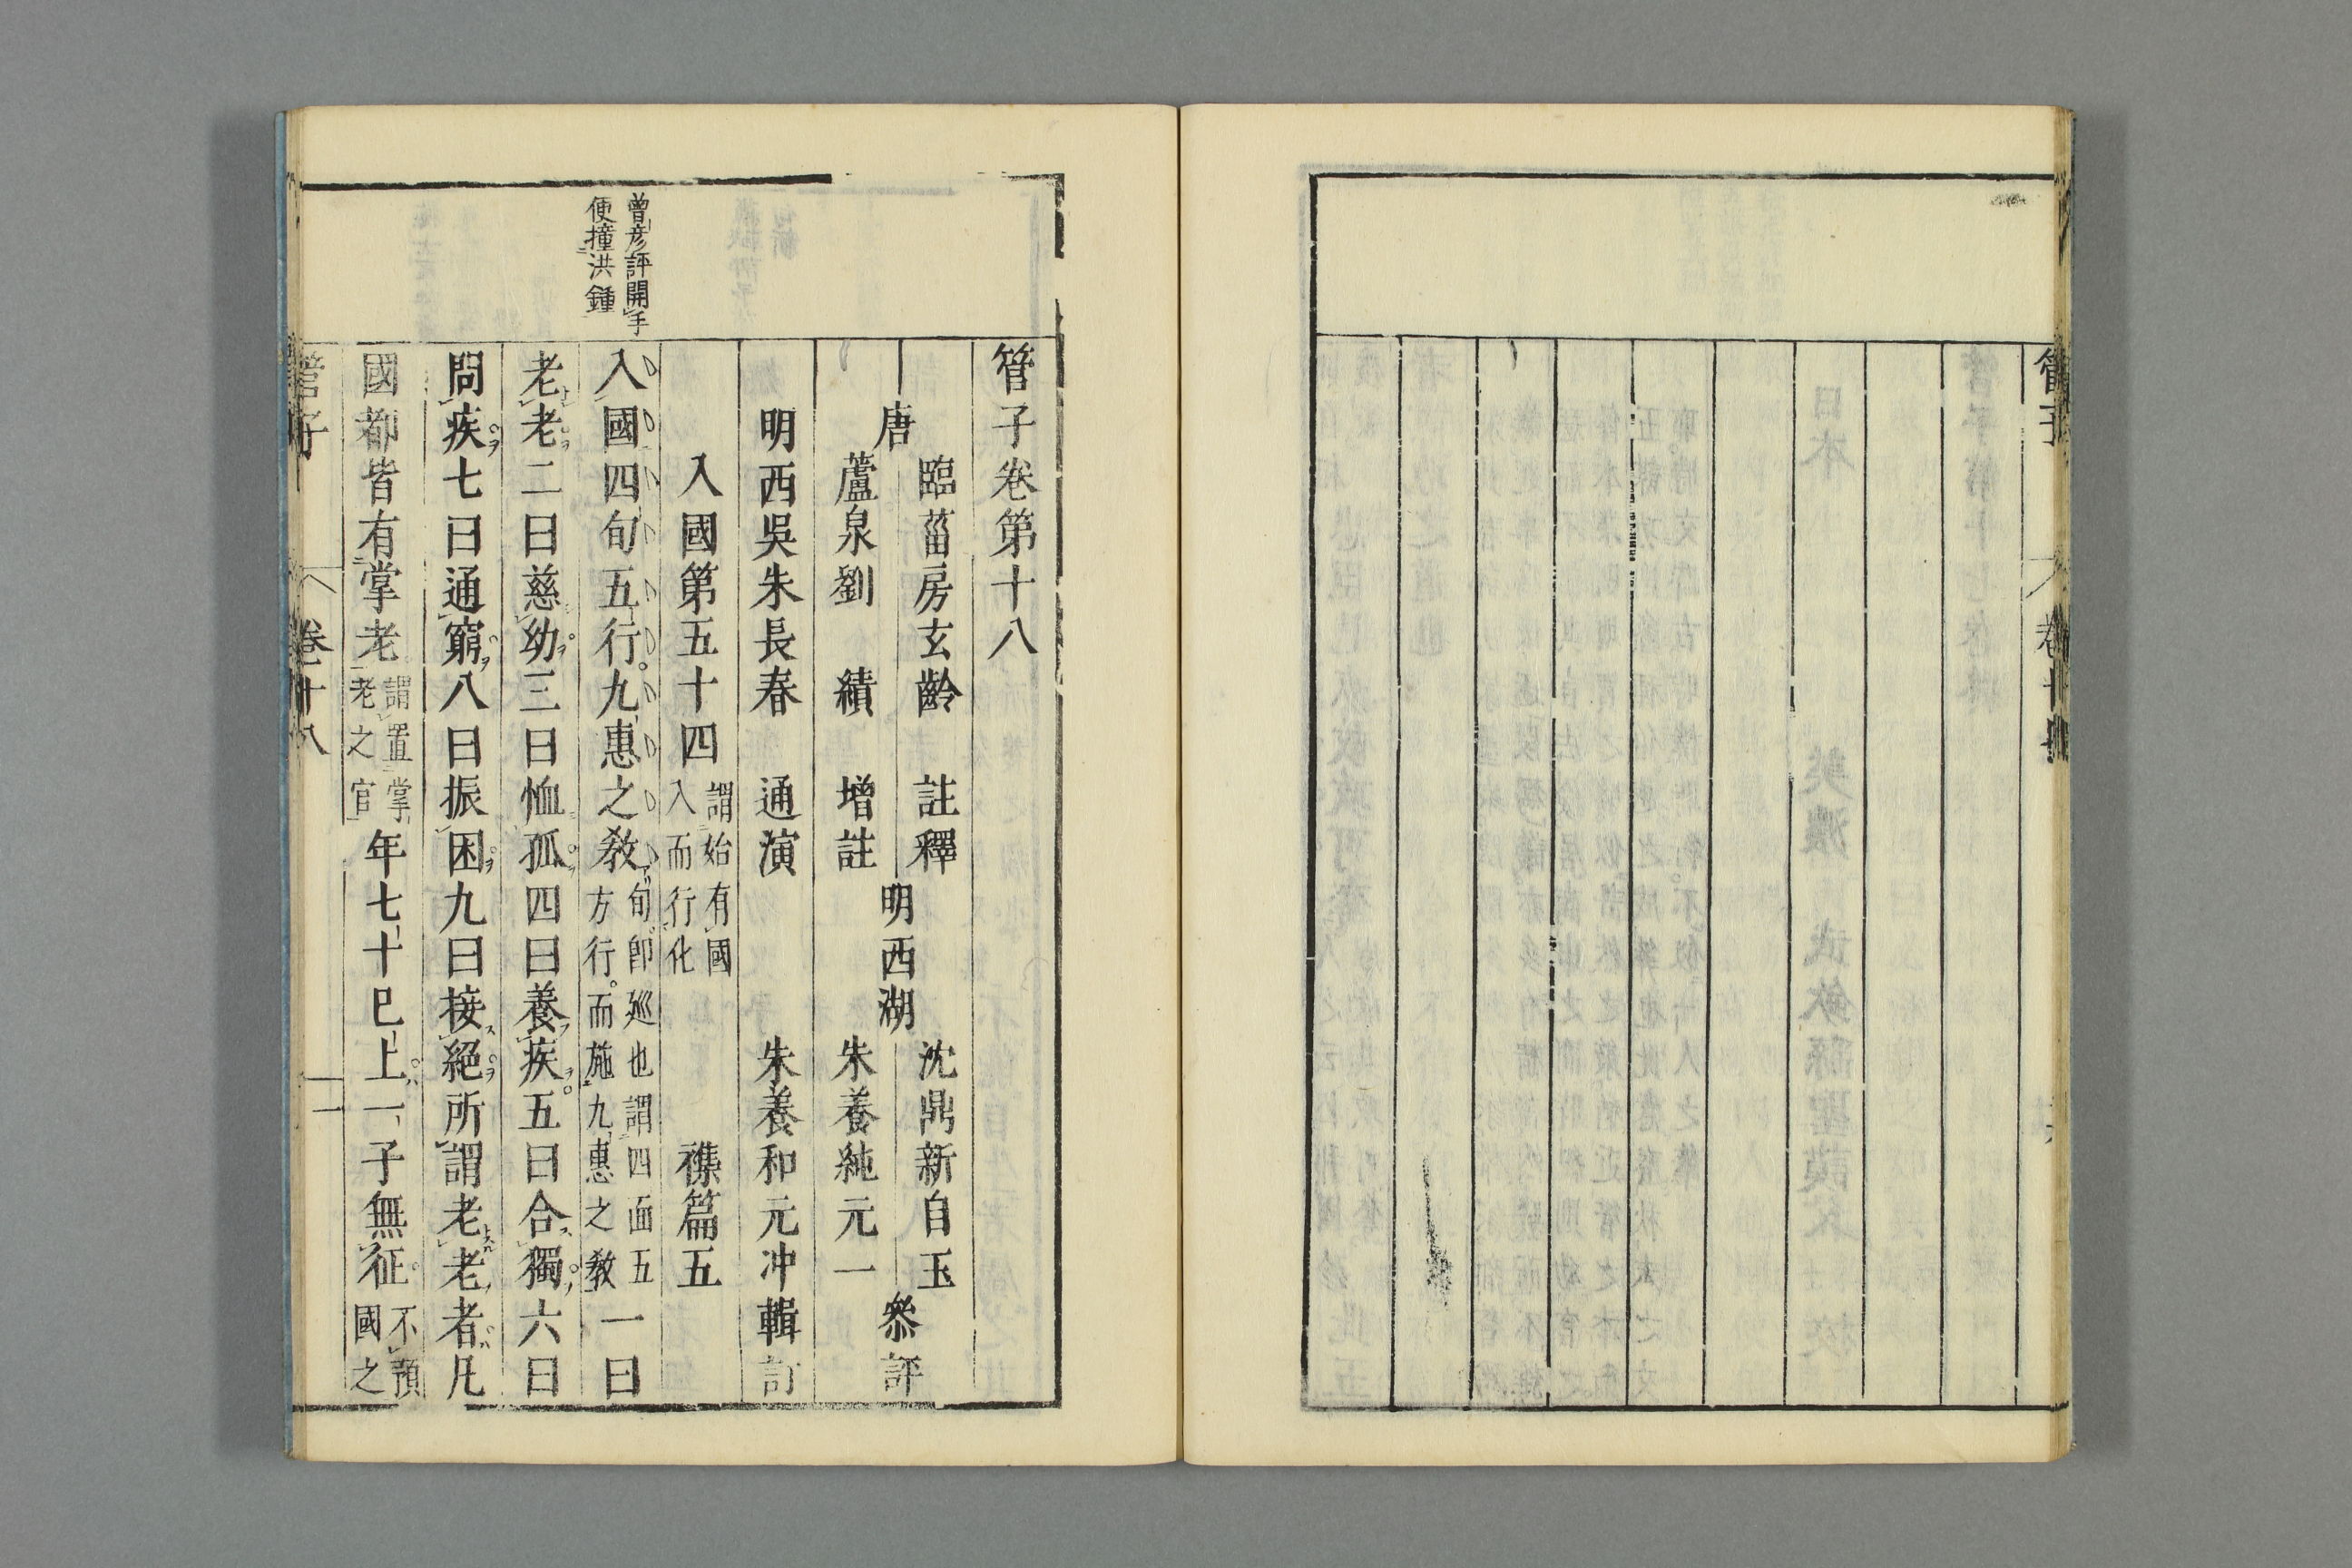 管子
管子卷第十八
唐
臨菑房玄齡 註釋
蘆泉劉 績 增註
明西湖
沈鼎新自玉
朱養純元一
叅評
明西吳朱長春 通演
朱養和元冲輯訂
入國第五十四
謂始有國
入而行化
襍篇五
曾彦評開手
便撞洪鍾
入國四旬五行九惠之教
旬即廵也謂四面五
方行而施九惠之教
一曰
老老二曰慈幼三曰恤孤四曰養疾五曰合獨六曰
問疾七曰通窮八曰振困九曰接絕所謂老老者凡
國都皆有掌老
謂置掌
老之官
年七十巳上一子無征
不預
國之
管子 卷十八 一